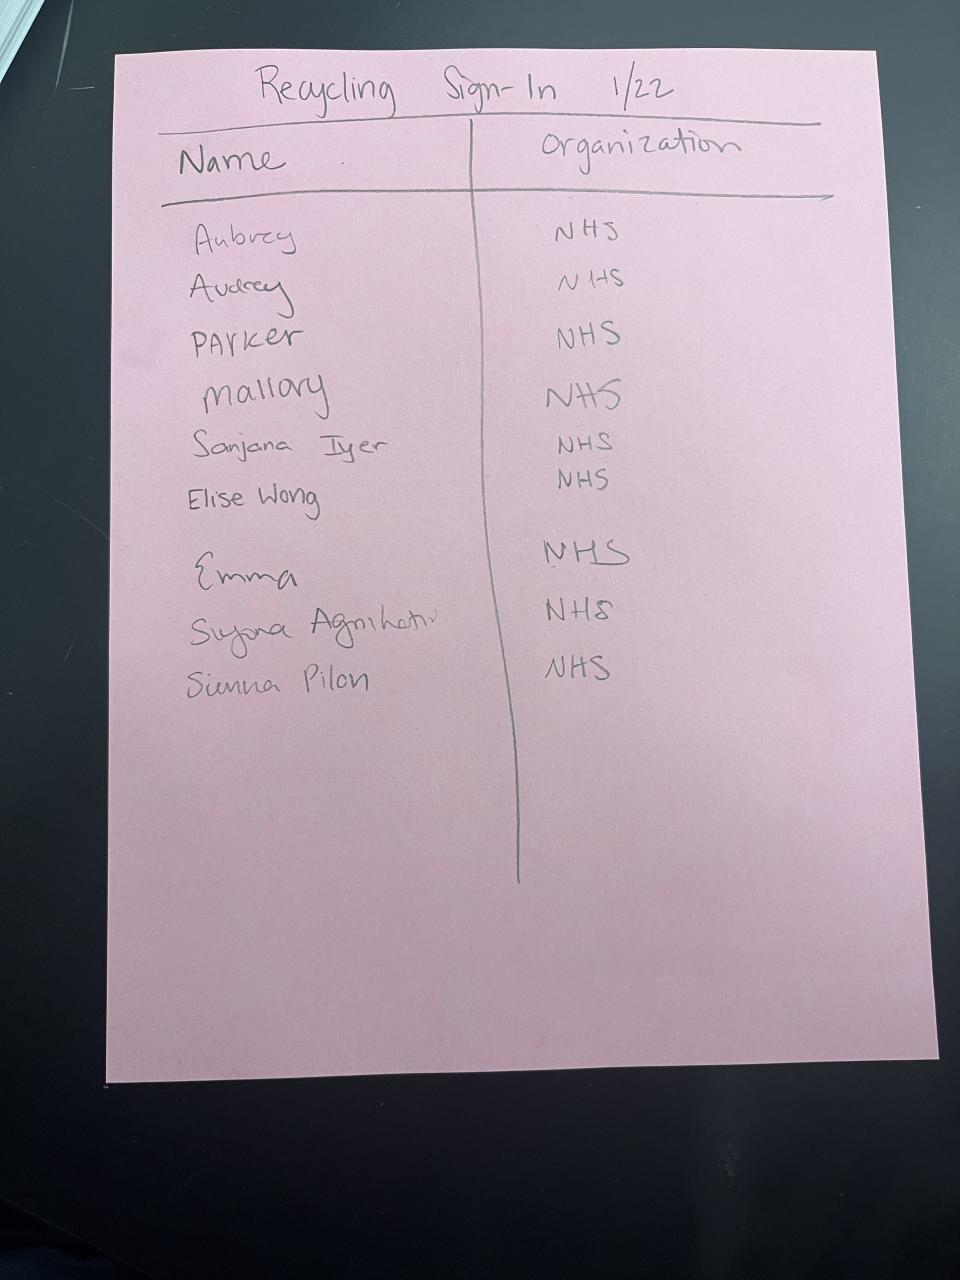 Recycling Sign-In 1/22
Name Organization
Aubrey NHS
Audrey NHS
PARKer NHS
Mallory NHS
Sanjana Iyer NHS
Elise Wong NHS
Emma NHS
NHS
Sienna Pilon NHS